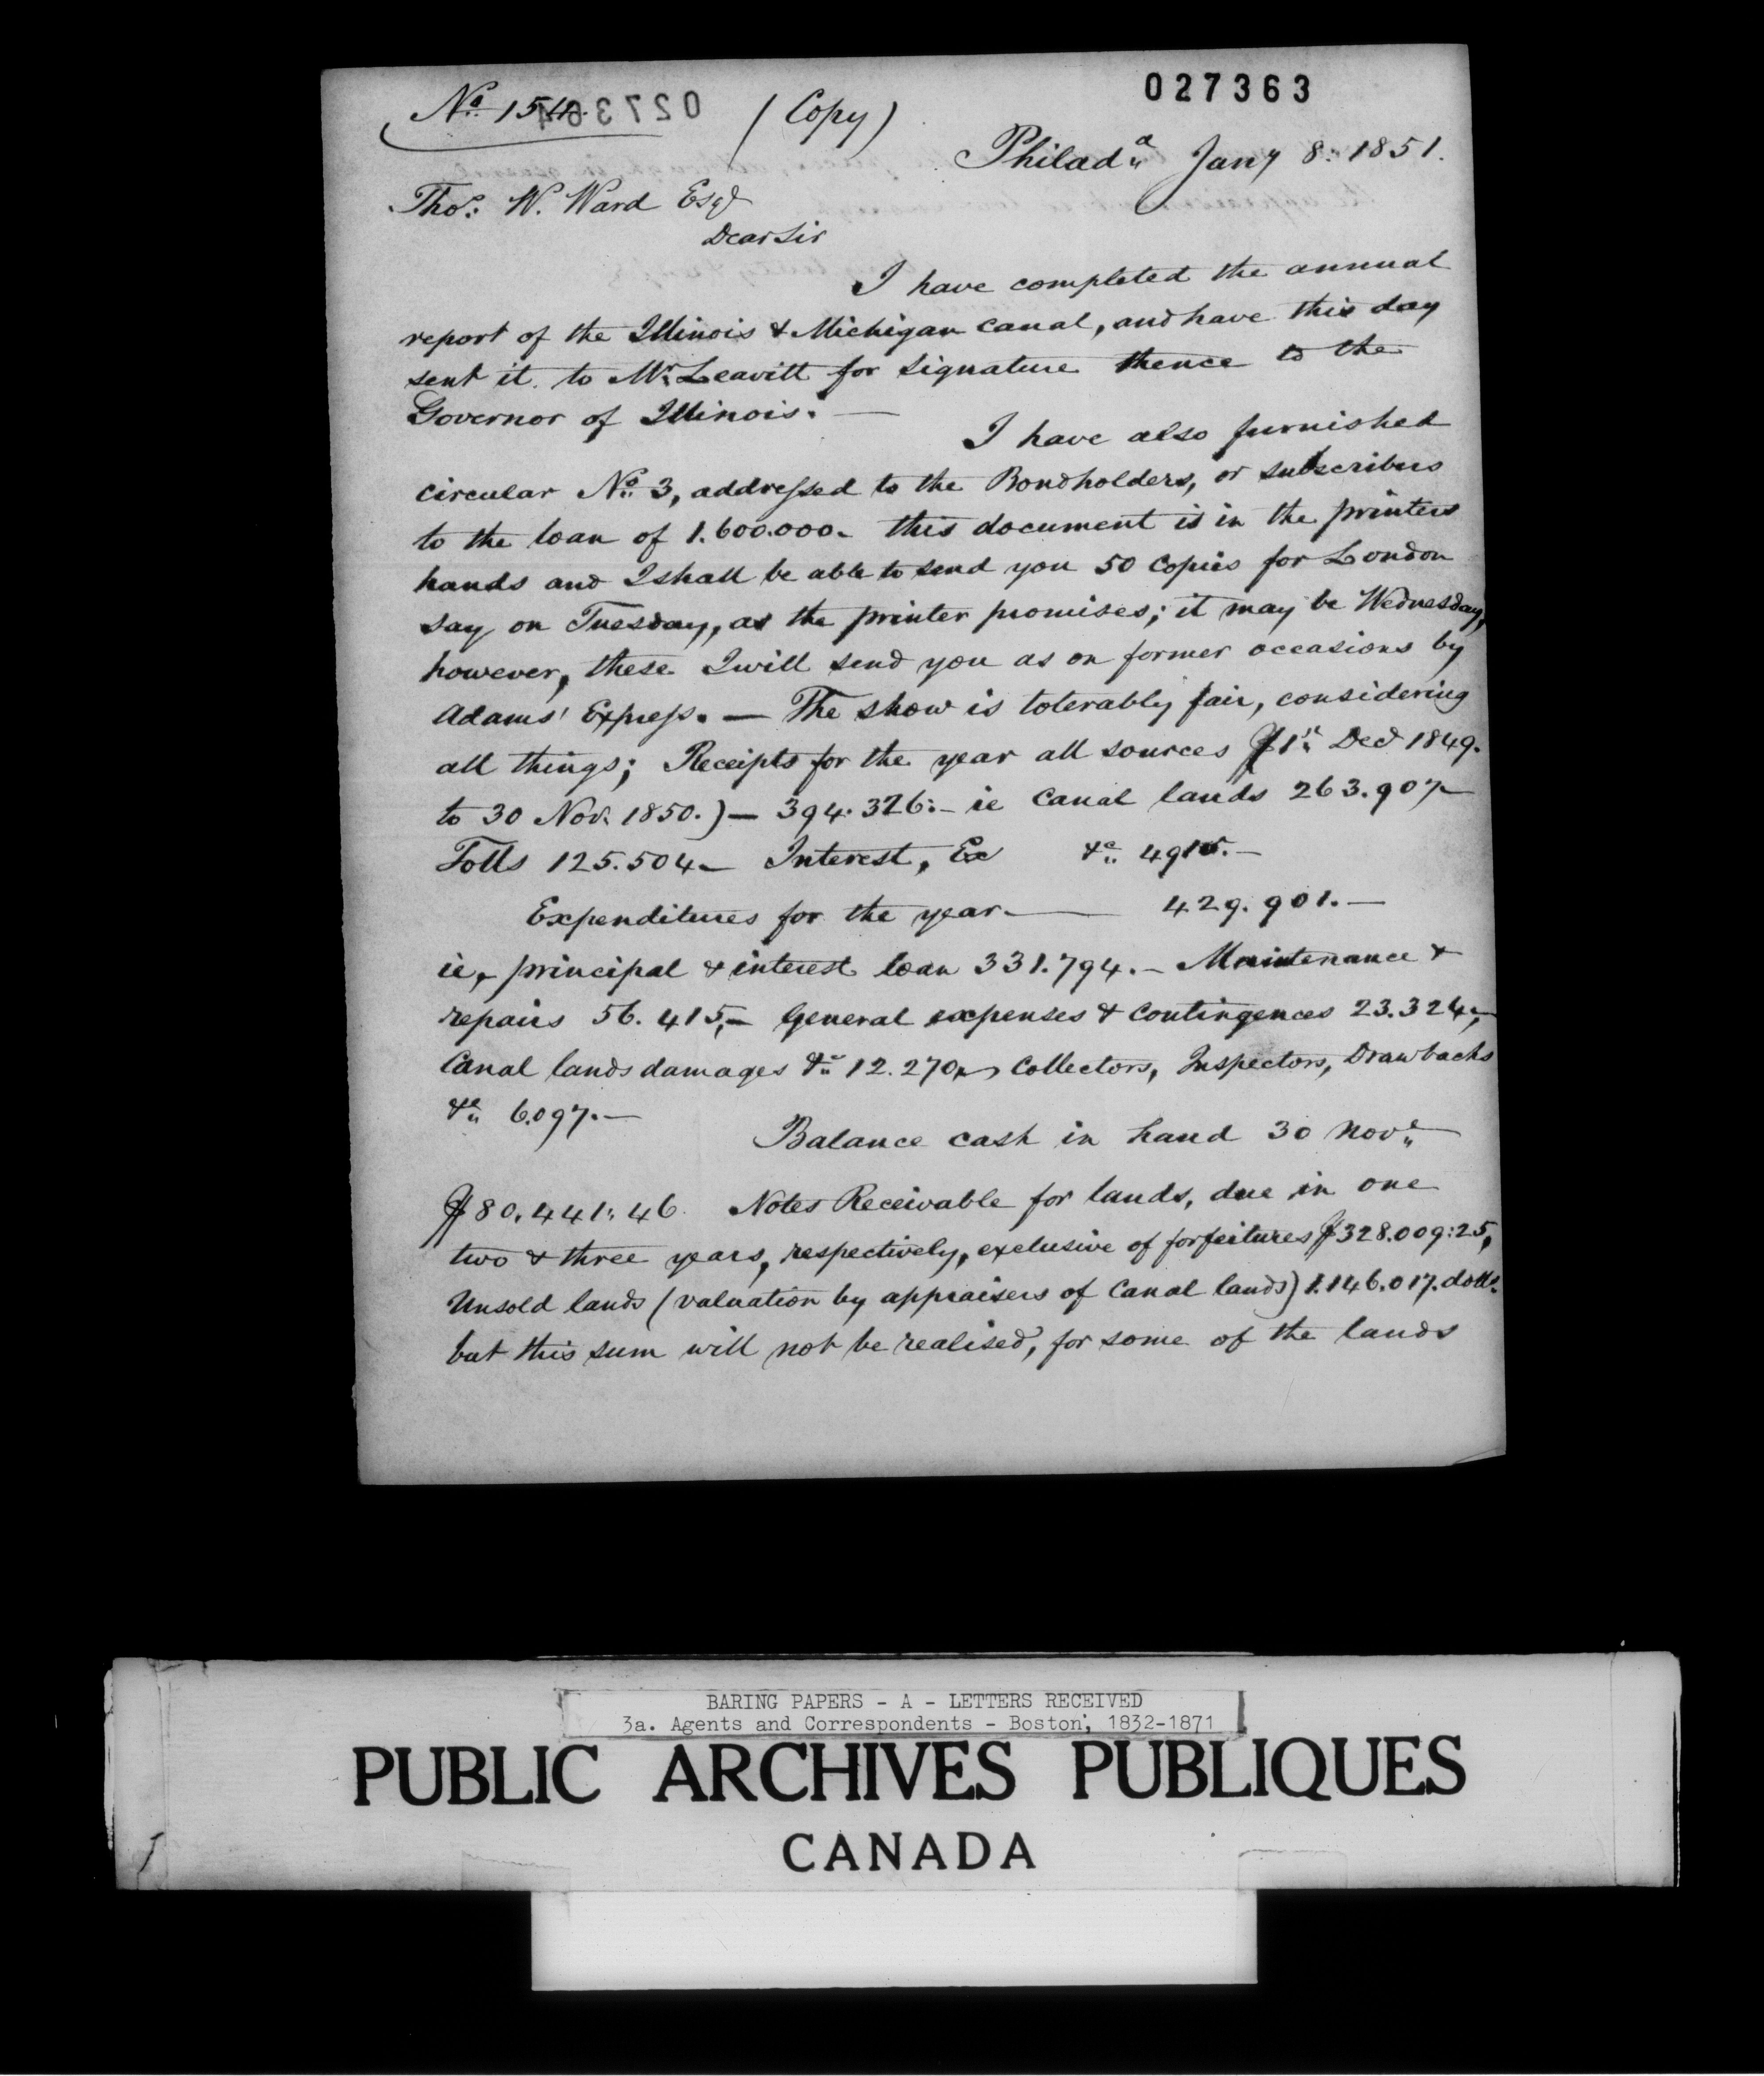 027363
Nº 154. (Copy)
Philadª Jany 8: 1851.
Thos: W. Ward Esqr
Dear Sir
I have completed the annual
report of the Illinois & Michigan canal, and have this day
sent it to Mr. Leavitt for signature thence to the
Governor of Illinois. —
I have also furnished
circular Nº 3, addressed to the Bondholders, or subscribers
to the loan of 1.600.000. this document is in the printers
hands and I shall be able to send you 50 Copies for London
say on Tuesday, as the printer promises; it may be Wednesday,
however, these I will send you as on former occasions by
Adams' Express. — The show is tolerably fair, considering
all things; Receipts for the year all sources 1st Decr 1849.
to 30 Nov. 1850.) — 394.326:- ie Canal lands 263.907—
Tolls 125.504— Interest, Ex &c 4915.—
Expenditures for the year. — 429.901.—
ie, principal & interest loan 331.794.— Maintenance &
repairs 56.415,— General expenses & Contingences 23.324,—
Canal lands damages &c 12.270, Collectors, Inspectors, Drawbacks
&c 6.097.—
Balance cash in hand 30 Nove
$80.441:46. Notes Receivable for lands, due in one
two & three years, respectively, exclusive of forfeitures $328.009:25,
Unsold lands (valuation by appraisers of Canal lands) 1.146.017. dolls.
but this sum will not be realised, for some of the lands
BARING PAPERS - A - LETTERS RECEIVED
3a. Agents and Correspondents - Boston, 1832-1871
PUBLIC ARCHIVES PUBLIQUES
CANADA